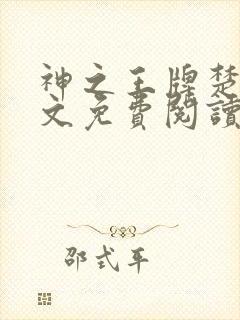 神之王牌楚
文免費閱讀
邵式平